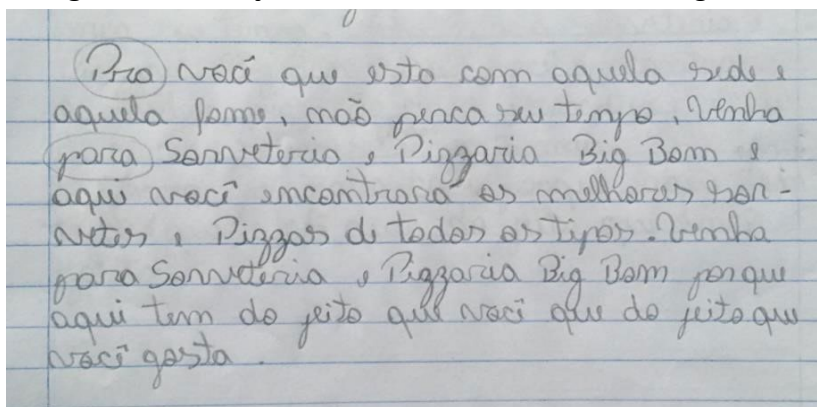 Pra você que esta com aquela sede e
aquela fome, não perca seu tempo, Venha
para Sorveteria e Pizzaria Big Bom e
aqui você encontrará os melhores sor-
vetes e Pizzas de todos os tipos. Venha
para Sorveteria e Pizzaria Big Bom porque
aqui tem do jeito que você que do jeito que
você gosta.